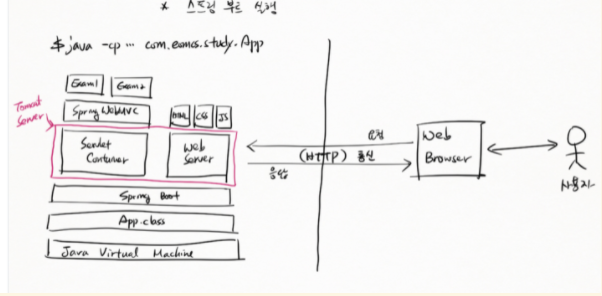 * 스프링 부트 실행
$ java -cp … com.eomcs.study.App
Exam1 Exam2
Tomcat Server
Spring WebMVC
HTML CSS JS
Servlet Container
Web Server
Spring Boot
App.class
Java Virtual Machine
요청
(HTTP) 통신
응답
Web Browser
사용자